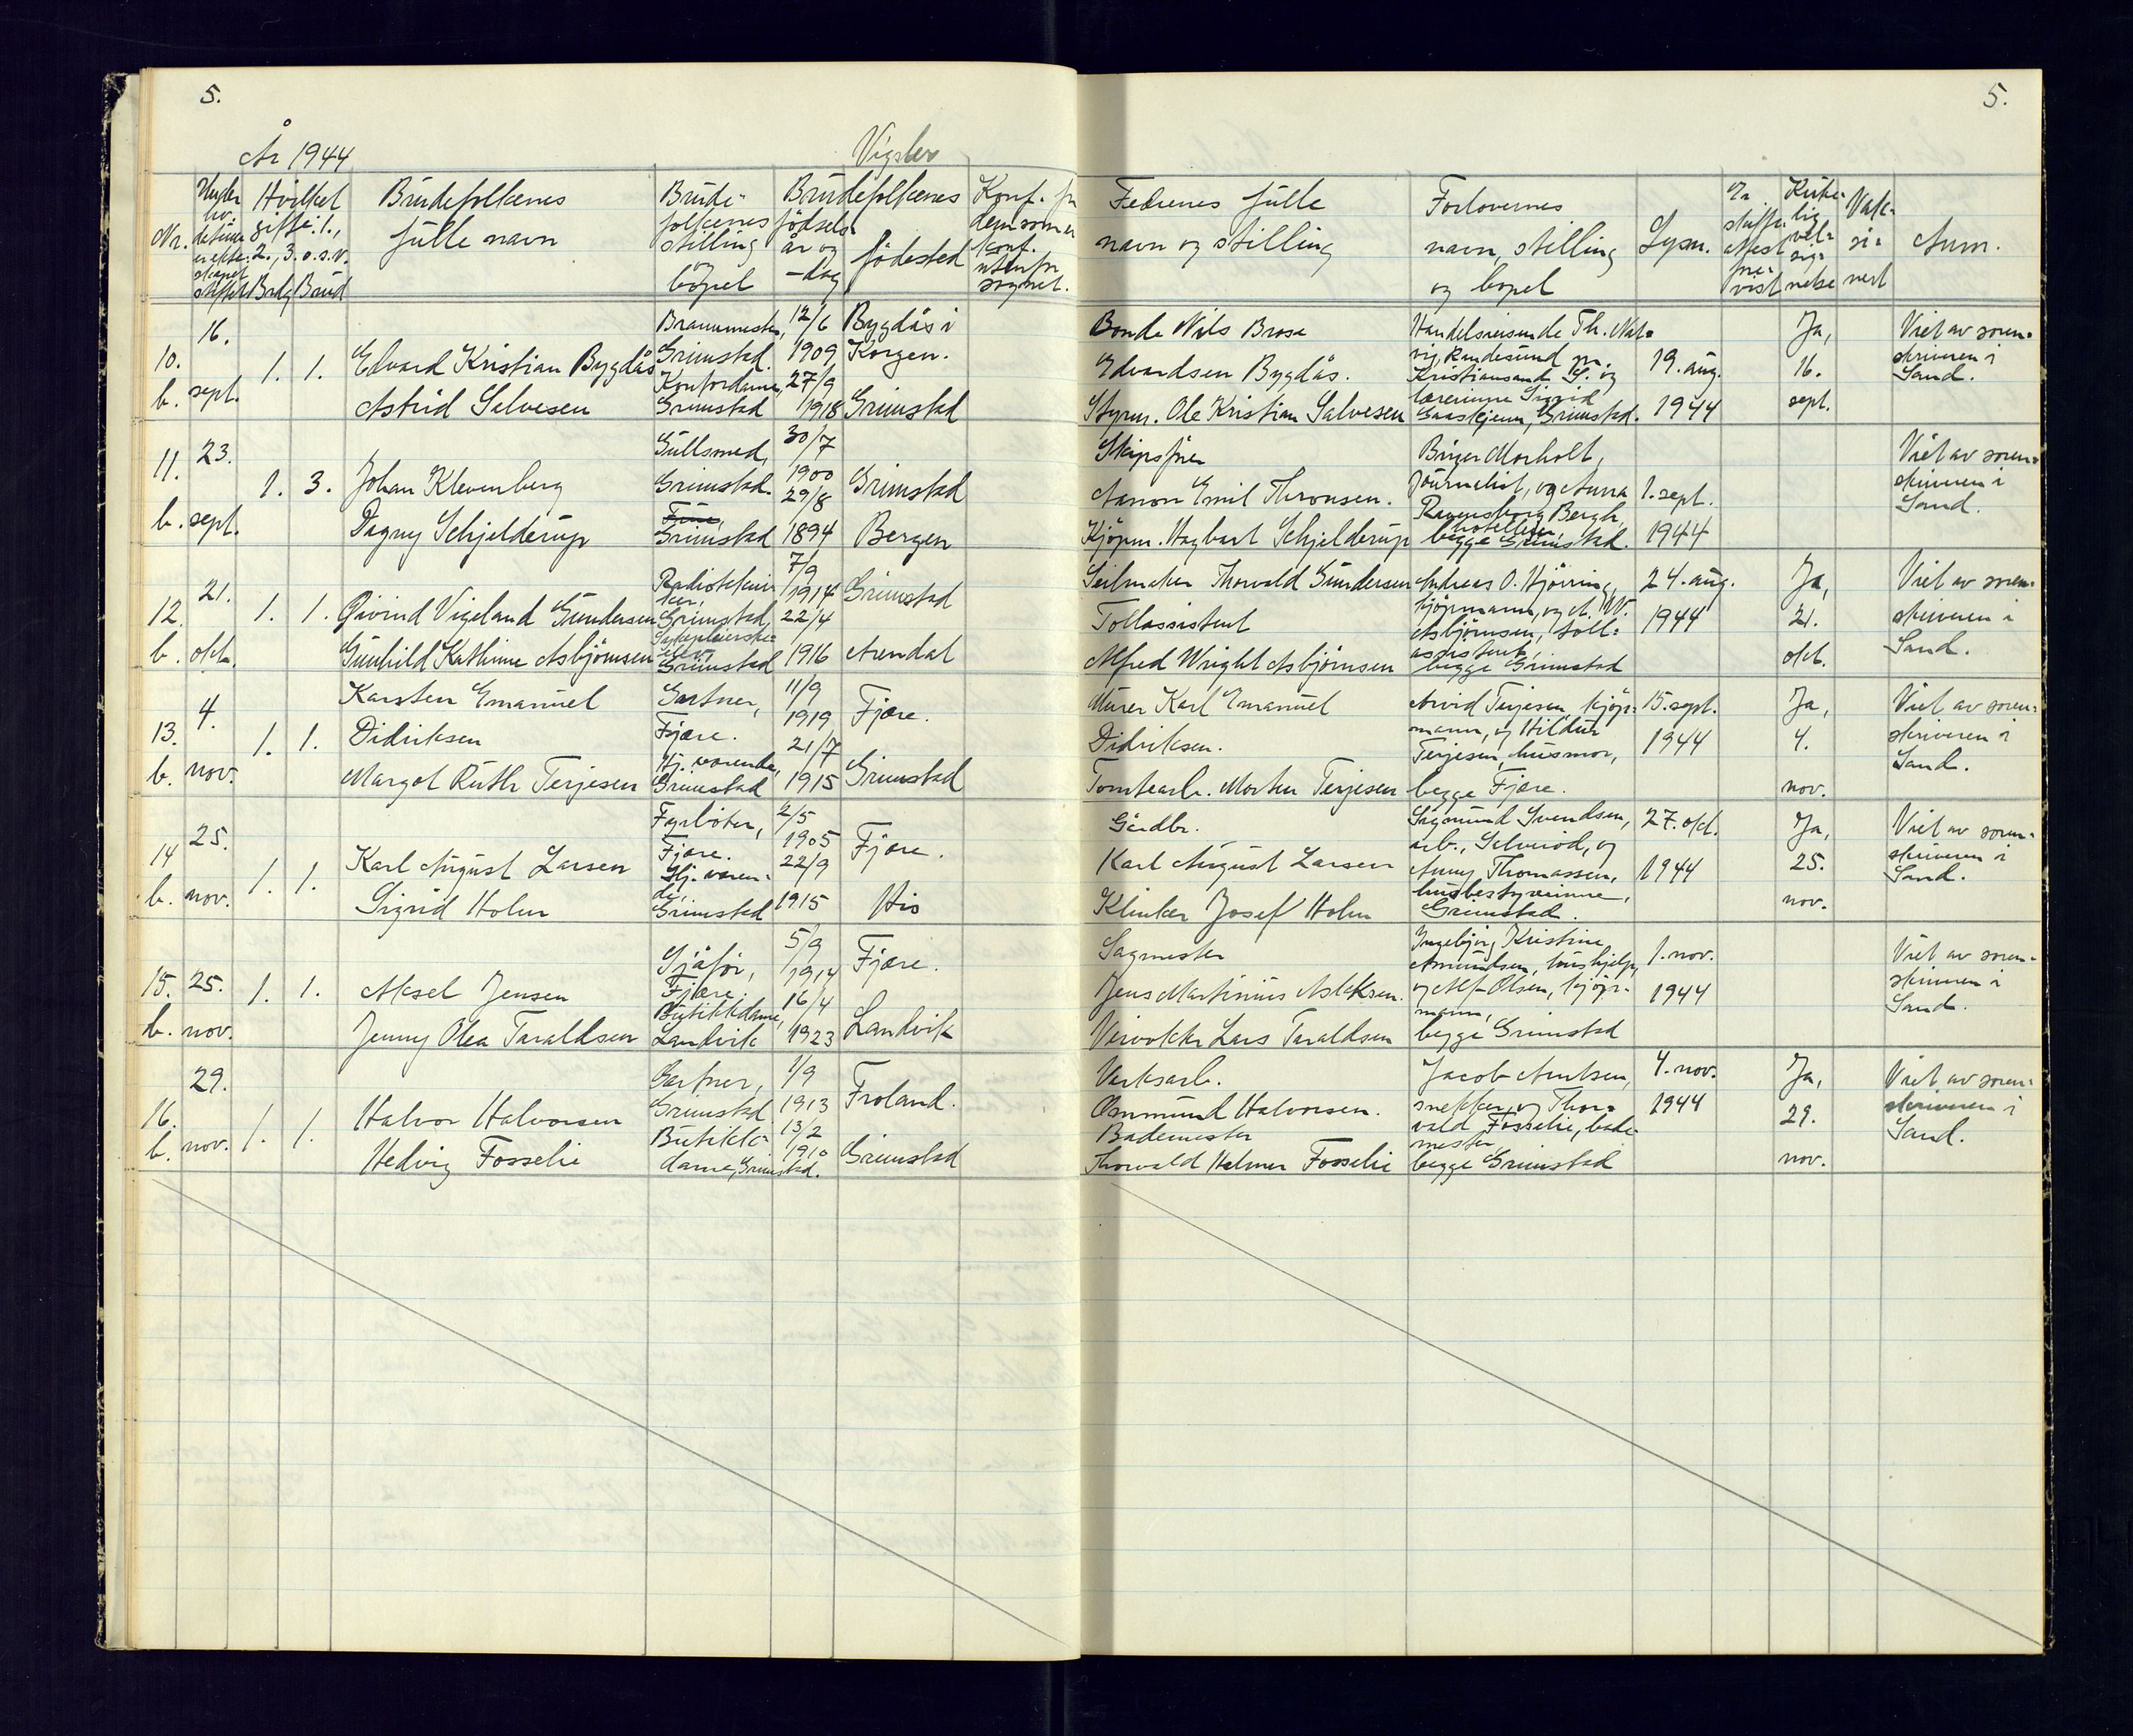 5.
År 1944
Vigsler
Nr.
Hvilket
gifte: 1.,
2., 3. o.s.v.
Brdg Brud
Brudefolkenes
fulle navn
Brude-
folkenes
stilling
bopel
Brudefolkenes
födsels
år og
-dag
födested
Konf. for
dem som er
konf.
utenfor
sognet.
10.
b.
16.
sept.
1. 1.
Edvard Kristian Bygdås
Astrid Salvesen
Grimstad.
Konfordame,
Grimstad
12/6
1909
27/9
1918
Bygdås i
Korgen.
Grimstad
11.
b.
23.
sept.
1. 3.
Johan Klevenberg
Dagny Schjelderup
Gullsmed,
Grimstad.
Grimstad
30/7
1900
29/8
1894
Grimstad
Bergen
12.
b.
21.
okt.
1. 1.
Öivind Vigeland Gundersen
Gunhild Kathinne Asbjörnsen
Grimstad,
Grimstad
7/9
1914
22/4
1916
Grimstad
Arendal
13.
b.
4.
nov.
1. 1.
Karsten Emanuel
Didriksen
Margot Ruth Terjesen
Gartner,
Fjære.
Hj. værende,
Grimstad
11/9
1919
21/7
1915
Fjære.
Grimstad
14
b.
25.
nov.
1. 1.
Karl August Larsen
Sigrid Holm
Fyrböter,
Fjære.
Hj. væren-
de,
Grimstad
2/5
1905
22/9
1915
Fjære.
His
15.
b.
25.
nov.
1. 1.
Aksel Jensen
Jenny Olea Taraldsen
Sjåför,
Fjære.
Butikkdame,
Landvik
5/9
1914
16/4
1923
Fjære.
Landvik
16.
b.
29.
nov.
1. 1.
Halvor Halvorsen
Hedvig Fosselie
Gartner,
Grimstad
Butikk-
dame, Grimstad.
1/9
1913
13/2
1910
Froland.
Grimstad
5.
Fedrenes fulle
navn og stilling
Forlovernes
navn, stilling
og bopel
Lysn.
Er
skifte-
attest
fre-
vist
Kirke-
lig
vel-
sig-
nelse
Vak-
si-
nert
Anm.
Bonde Nils Brosa
Edvardsen Bygdås.
Styrm. Ole Kristian Salvesen
Handelsreisende Th. Nat-
vig, Randesund pr.
Kristiansand S. og
lærerinne Sigrid
Grimstad.
19. aug.
1944
Ja,
16.
sept.
Viet av soren-
skriveren i
Sand.
Skipsförer
Aanon Emil Thronsen.
Kjöpm. Hagbart Schjelderup
Birger Morholt,
journalist, og Anna
Ravensborg Bergh,
begge Grimstad.
1. sept.
1944
Viet av soren-
skriveren i
Sand.
Seilmaker Thorvald Gundersen
Tollassistent
Alfred Wright Asbjörnsen
Andreas O. Hjörring,
kjöpmann, og A. W.
Asbjörnsen, toll-
assistent,
begge Grimstad
24. aug.
1944
Ja,
21.
okt.
Viet av soren-
skriveren i
Sand.
Murer Karl Emanuel
Didriksen.
Tomtearb. Morten Terjesen
Arvid Terjesen, kjöp-
mann, og Hildur
Terjesen, husmor,
begge Fjære.
15. sept.
1944
Ja,
4.
nov.
Viet av soren-
skriveren i
Sand.
Gårdbr.
Karl August Larsen
Klinker Josef Holm
Sigmund Svendsen,
arb., og
Anny Thomassen,
husbestyrerinne,
Grimstad.
27. okt.
1944
Ja,
25.
nov.
Viet av soren-
skriveren i
Sand.
Sagmester
Jens Martinius Aslaksen.
Veivokter Lars Taraldsen
Ingebjörg Kristine
Amundsen, hushjelp,
og Alf Olsen, kjöp-
mann,
begge Grimstad
1. nov.
1944
Viet av soren-
skriveren i
Sand.
Verksarb.
Osmund Halvorsen.
Bademester
Thorvald Helmer Fosselie
Jacob Arntsen,
snekker, og Thor-
vald Fosselie, bade-
mester,
begge Grimstad
4. nov.
1944
Ja,
29.
nov.
Viet av soren-
skriveren i
Sand.